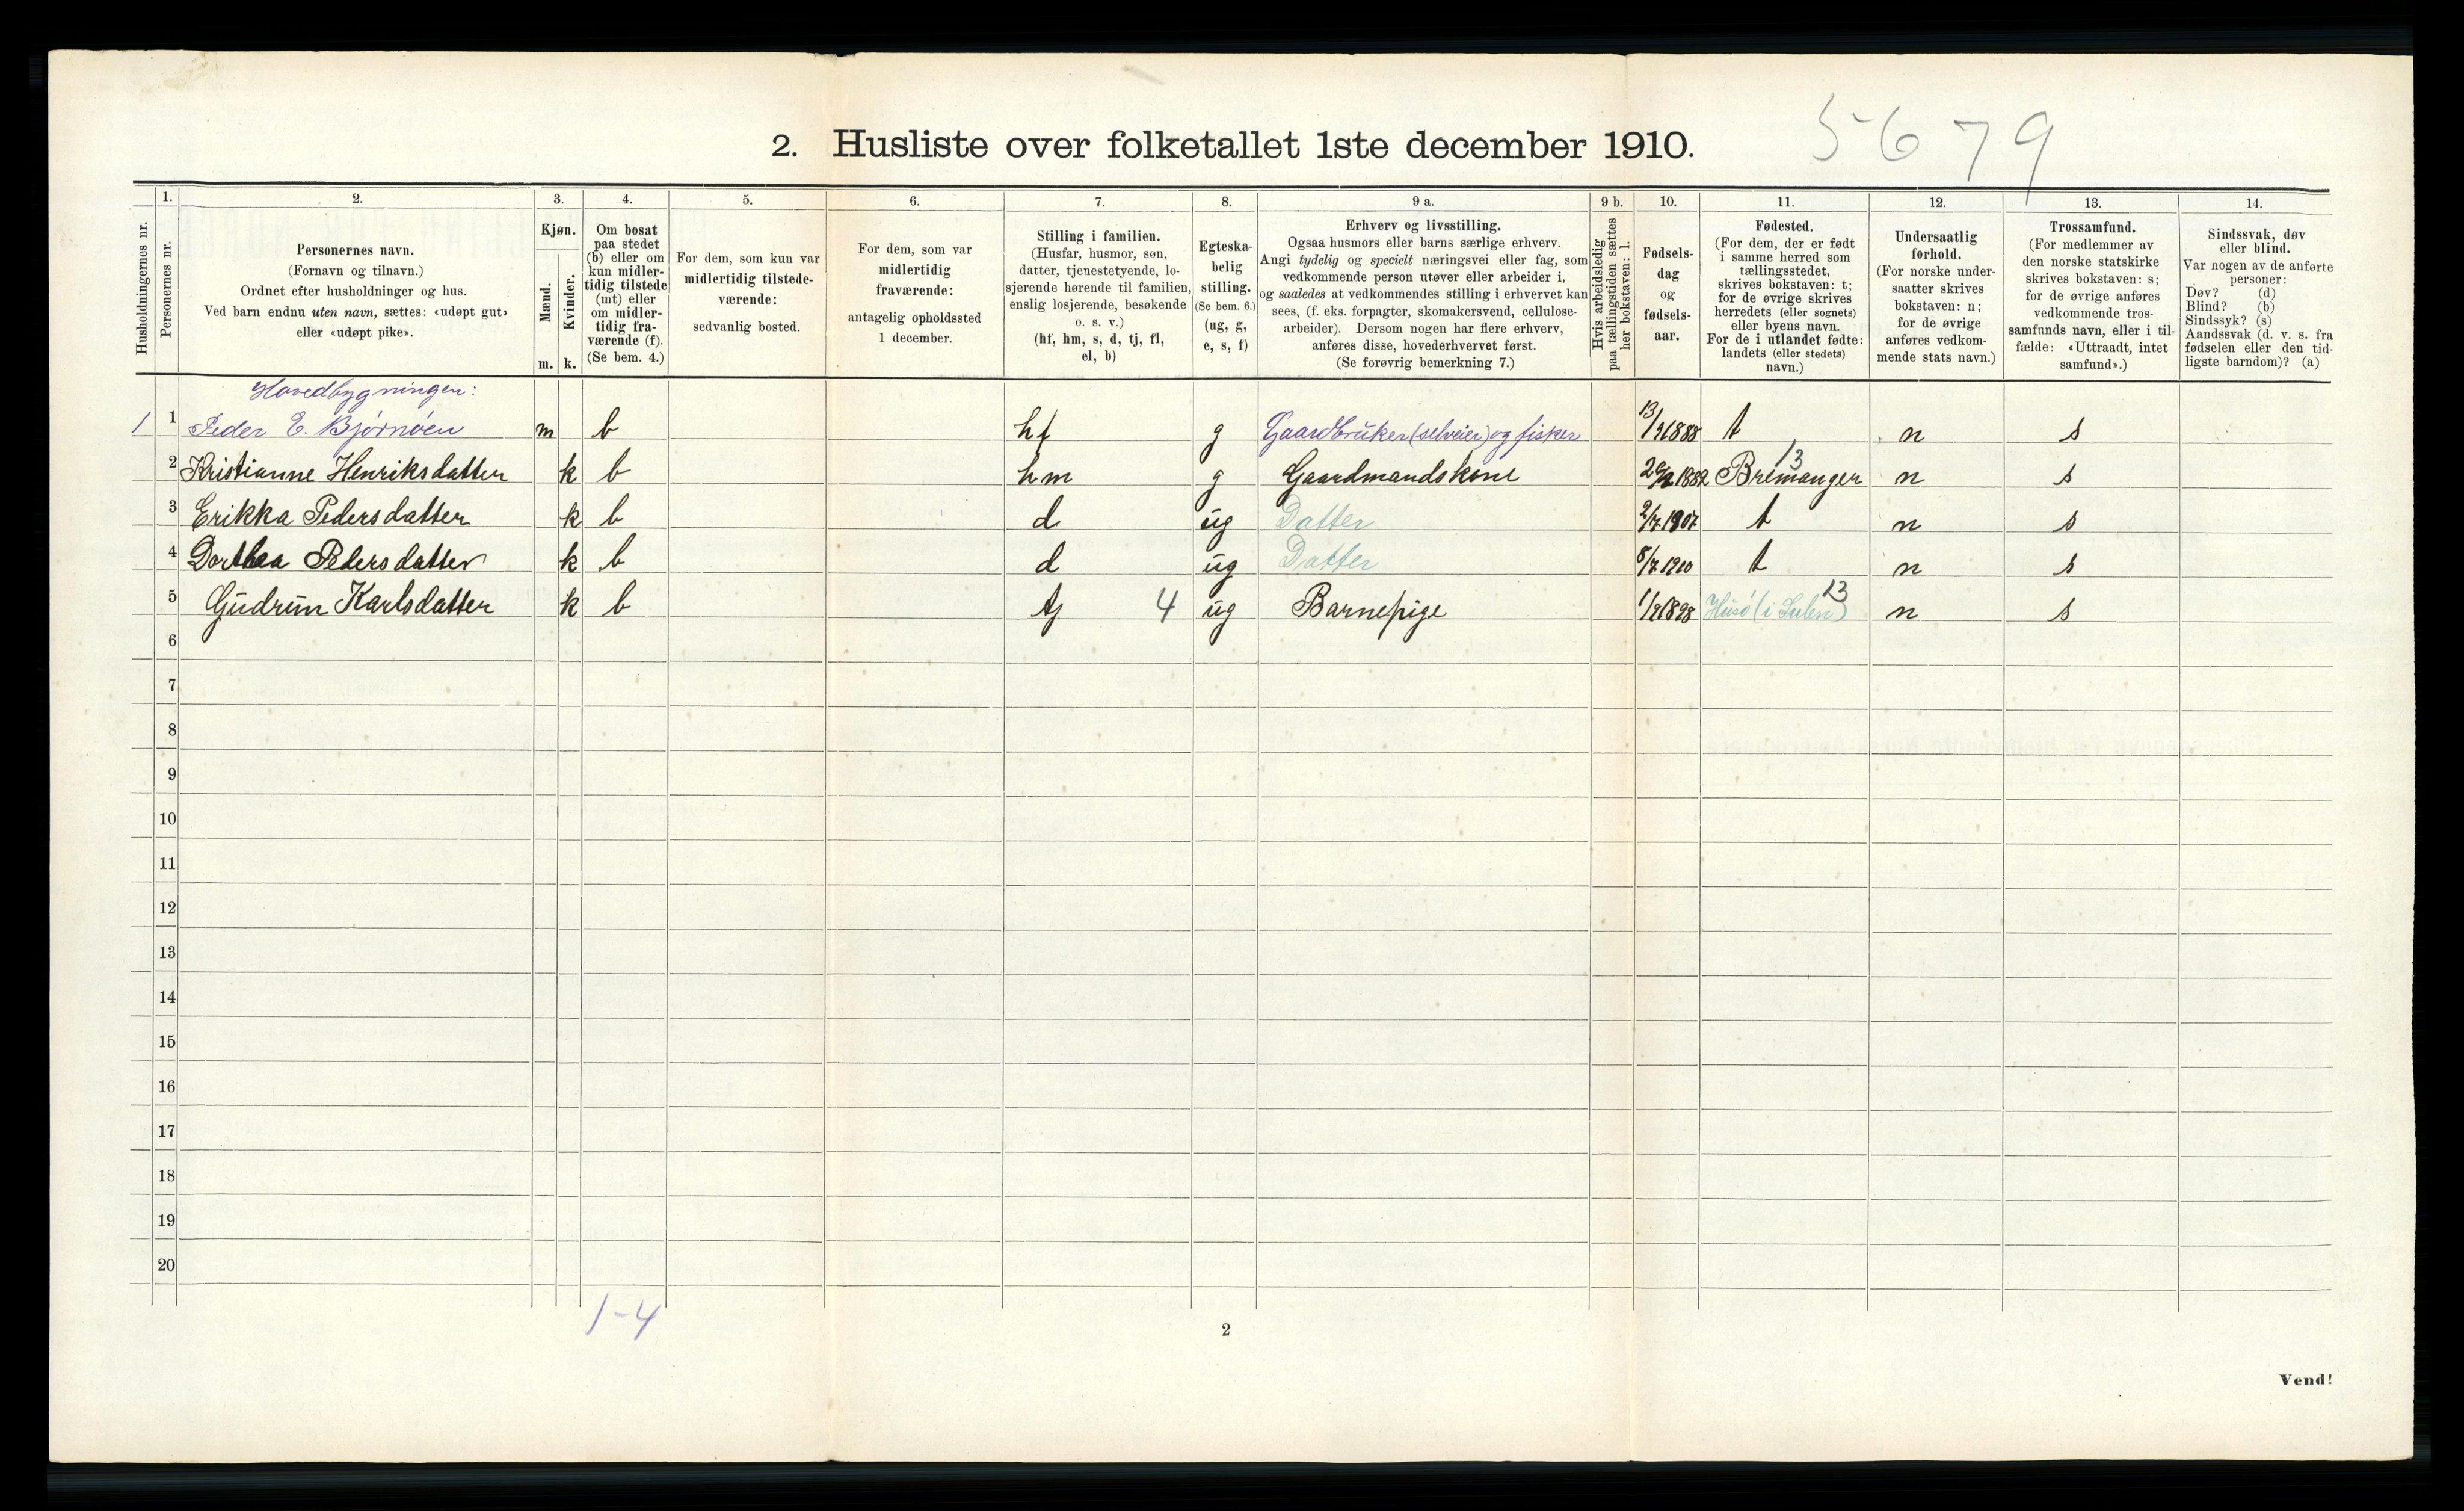 5679
2. Husliste over folketallet 1ste december 1910.
Husholdningernes nr.
1. Personernes nr.
2. Personernes navn.
(Fornavn og tilnavn.)
Ordnet efter husholdninger og hus.
Ved barn endnu uten navn, sættes: «udøpt gut»
eller «udøpt pike».
3. Kjøn.
Mænd. m.
Kvinder. k.
4. Om bosat
paa stedet
(b) eller om
kun midler-
tidig tilstede
(mt) eller
om midler-
tidig fra-
værende (f).
(Se bem. 4.)
5. For dem, som kun var
midlertidig tilstede-
værende:
sedvanlig bosted.
6. For dem, som var
midlertidig
fraværende:
antagelig opholdssted
1 december.
7. Stilling i familien.
(Husfar, husmor, søn,
datter, tjenestetyende, lo-
sjerende hørende til familien,
enslig losjerende, besøkende
o. s. v.)
(hf, hm, s, d, tj, fl,
el, b)
8. Egteska-
belig
stilling.
(Se bem. 6.)
(ug, g,
e, s, f)
9 a. Erhverv og livsstilling.
Ogsaa husmors eller barns særlige erhverv.
Angi tydelig og specielt næringsvei eller fag, som
vedkommende person utøver eller arbeider i,
og saaledes at vedkommendes stilling i erhvervet kan
sees, (f. eks. forpagter, skomakersvend, cellulose-
arbeider). Dersom nogen har flere erhverv,
anføres disse, hovederhvervet først.
(Se forøvrig bemerkning 7.)
9 b. Hvis arbeidsledig
paa tællingstiden sættes
her bokstaven: l.
10. Fødsels-
dag
og
fødsels-
aar.
11. Fødested.
(For dem, der er født
i samme herred som
tællingsstedet,
skrives bokstaven: t;
for de øvrige skrives
herredets (eller sognets)
eller byens navn.
For de i utlandet fødte:
landets (eller stedets)
navn.)
12. Undersaatlig
forhold.
(For norske under-
saatter skrives
bokstaven: n;
for de øvrige
anføres vedkom-
mende stats navn.)
13. Trossamfund.
(For medlemmer av
den norske statskirke
skrives bokstaven: s;
for de øvrige anføres
vedkommende tros-
samfunds navn, eller i til-
fælde: «Uttraadt, intet
samfund».)
14. Sindssvak, døv
eller blind.
Var nogen av de anførte
personer:
Døv? (d)
Blind? (b)
Sindssyk? (s)
Aandssvak (d. v. s. fra
fødselen eller den tid-
ligste barndom)? (a)
Hovedbygningen:
1 1 Peder E. Bjørnøen m b hf g Gaardbruker (selveier) og fisker t n s
2 Kristianne Henriksdatter k b hm g Gaardmandskone Bremanger 13 n s
3 Erikka Pedersdatter k b d ug Datter 2/7 1907 t n s
4 Dorthea Pedersdatter k b d ug Datter 8/7 1910 t n s
5 Gudrun Karlsdatter k b tj 4 ug Barnepige Husø (i Sulen) 13 n s
6
7
8
9
10
11
12
13
14
15
16
17
18
19
20
1-4
2
Vend!